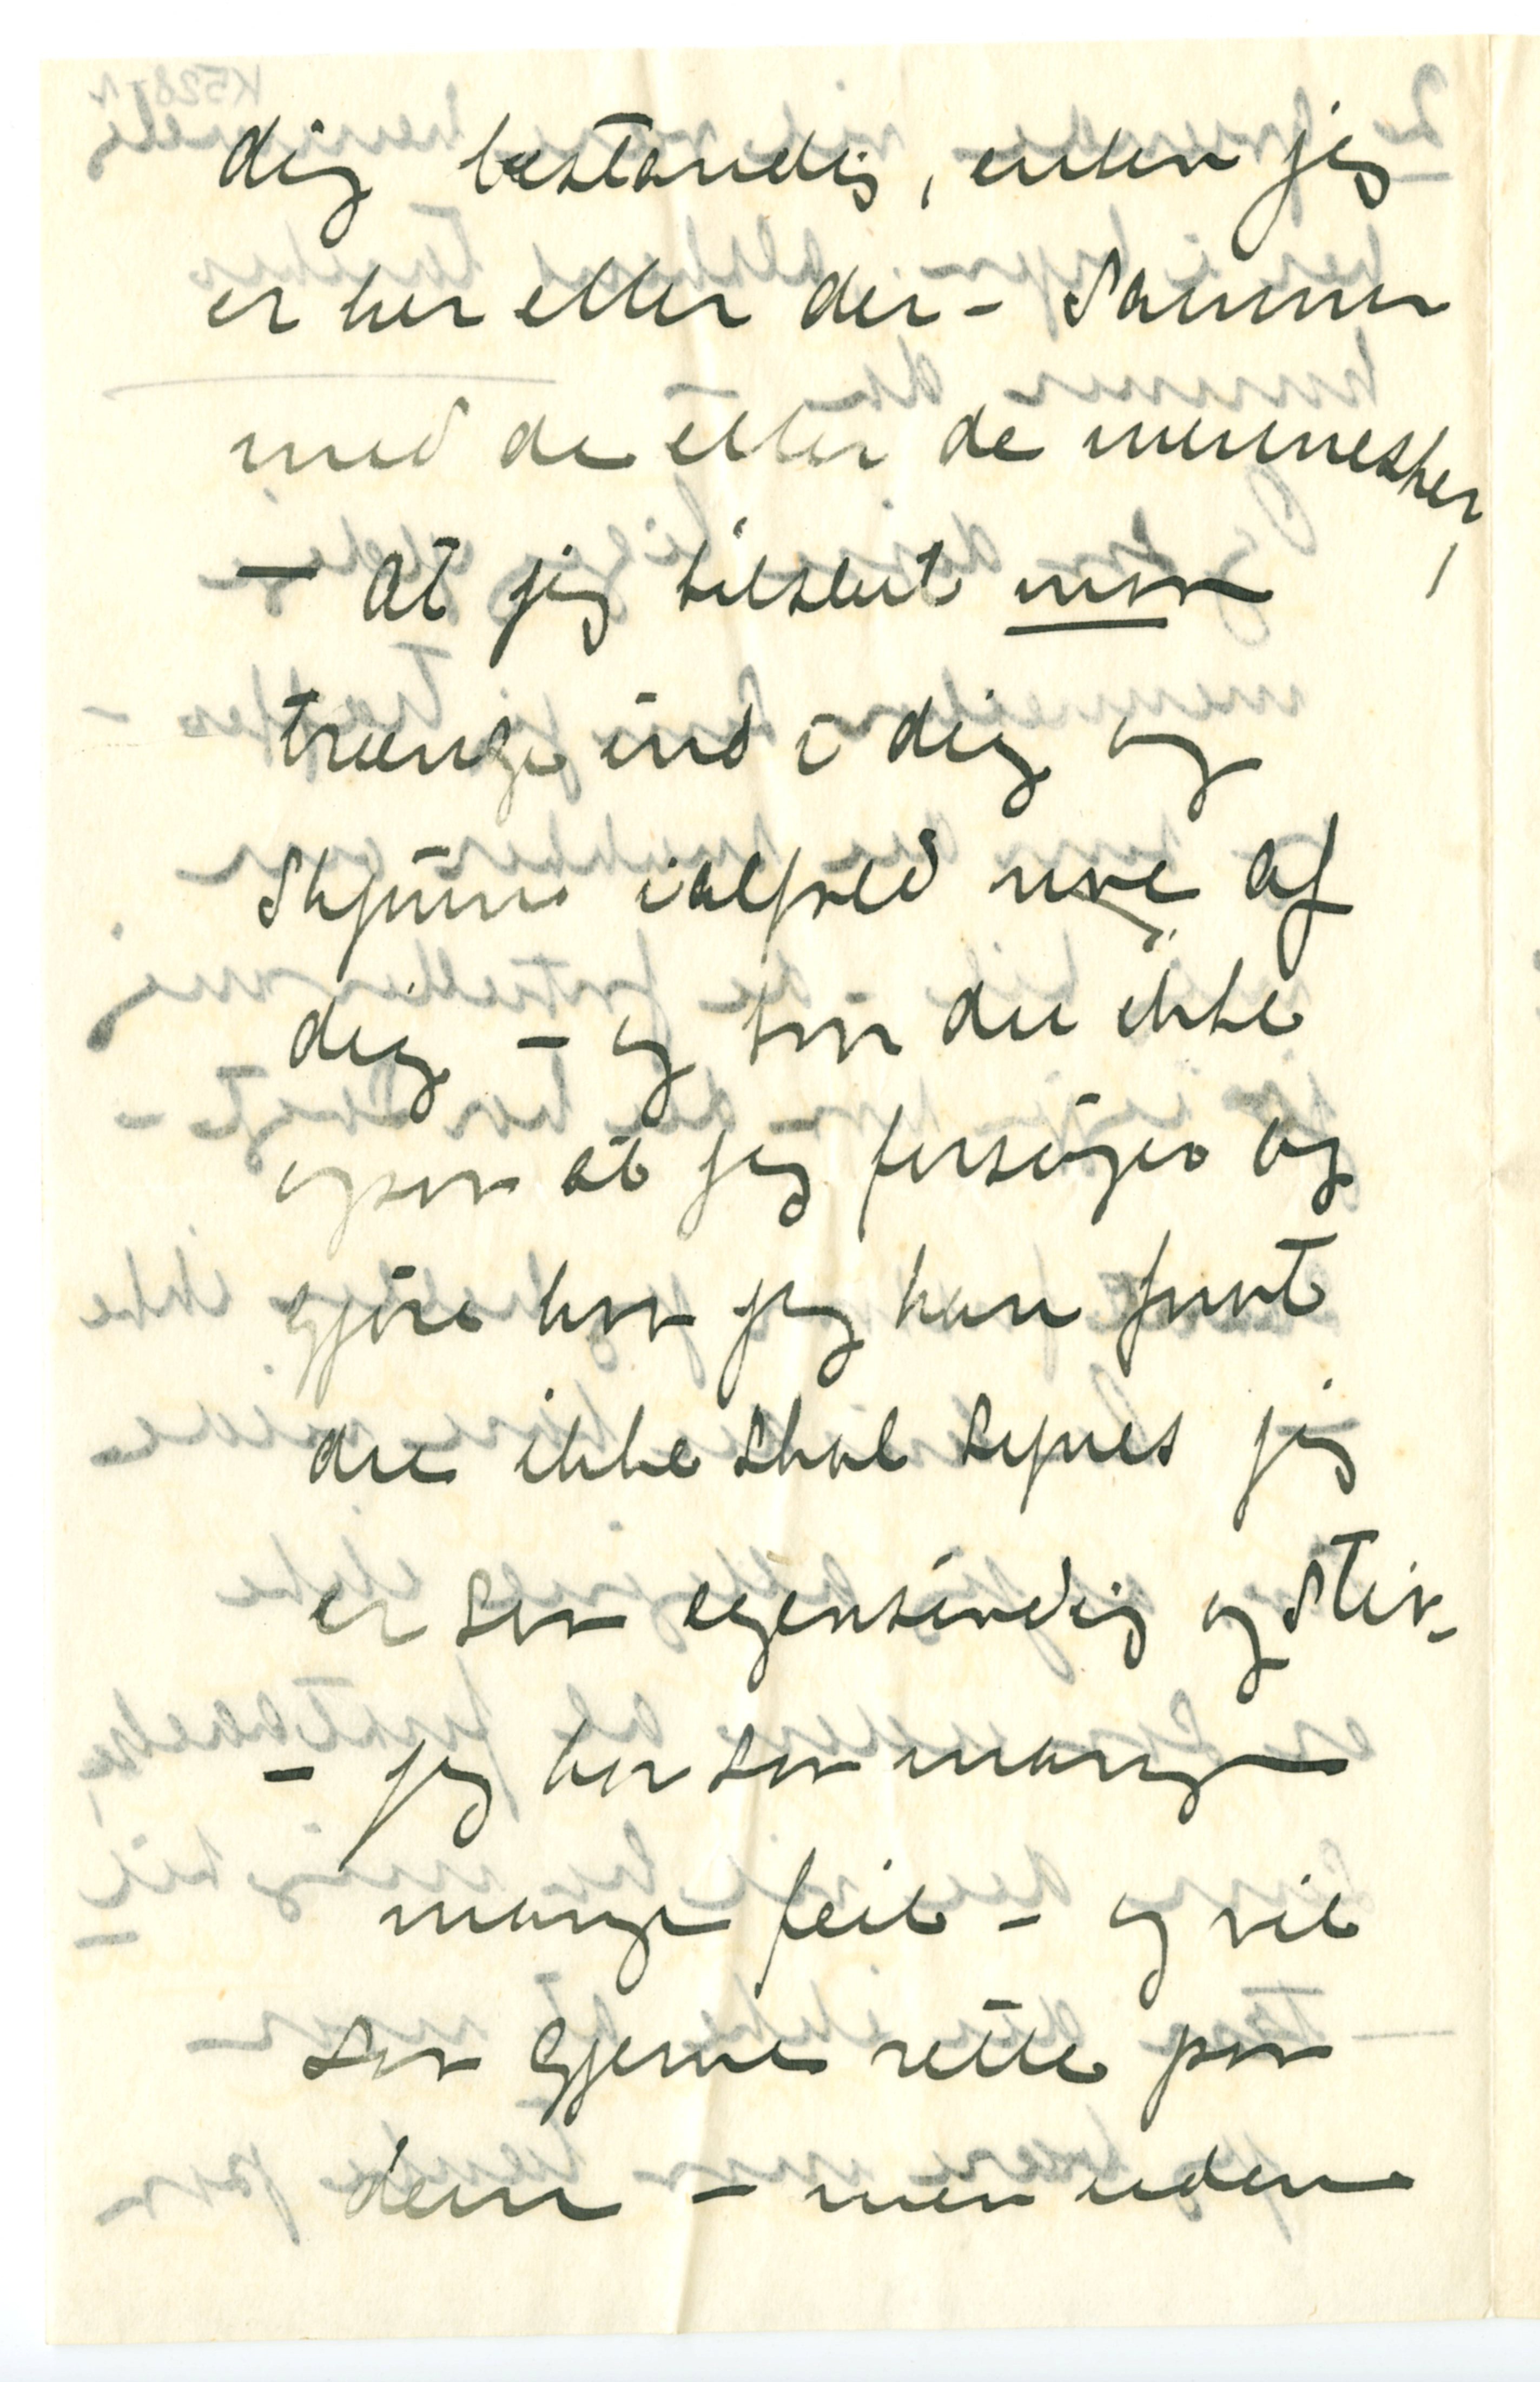 dig bestandig, enten jeg
er her eller der – Sammen
med de eller de mennesker,
– At jeg tilslut maa
trænge ind i dig og
Skjønne ialfald noe af
dig – og tror du ikke
ogsaa at jeg forsøger og
gjøre hva jeg kan forat
du ikke skal synes jeg
er saa egensindig og Stiv –
– jeg har saa mange
mange feil – og vil
saa gjerne rette paa
dem – men uden